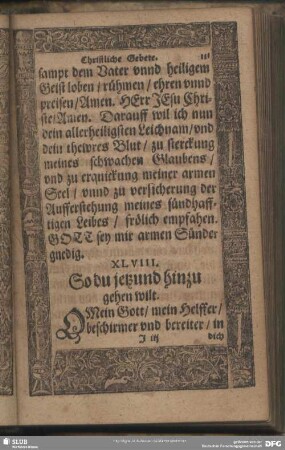 Christliche Gebete.
sampt dem Vater vnnd heiligem
Geist loben / rühmen / ehren vnnd
preisen / Amen. HErr JEsu Chri-
ste / Amen. Darauff wil ich nun
dein allerheiligsten Leichnam / vnd
dein thewres Blut / zu sterckung
meines schwachen Glaubens /
vnd zu erquickung meiner armen
Seel / vnnd zu versicherung der
Aufferstehung meines sündhaff-
tigen Leibes / frölich empfahen.
GOTT sey mir armen Sünder
gnedig.
XLVIII.
So du jetzund hinzu
gehen wilt.
O Mein Gott / mein Helffer /
beschirmer vnd bereiter / in
J iij
dich
SLUB
DFG